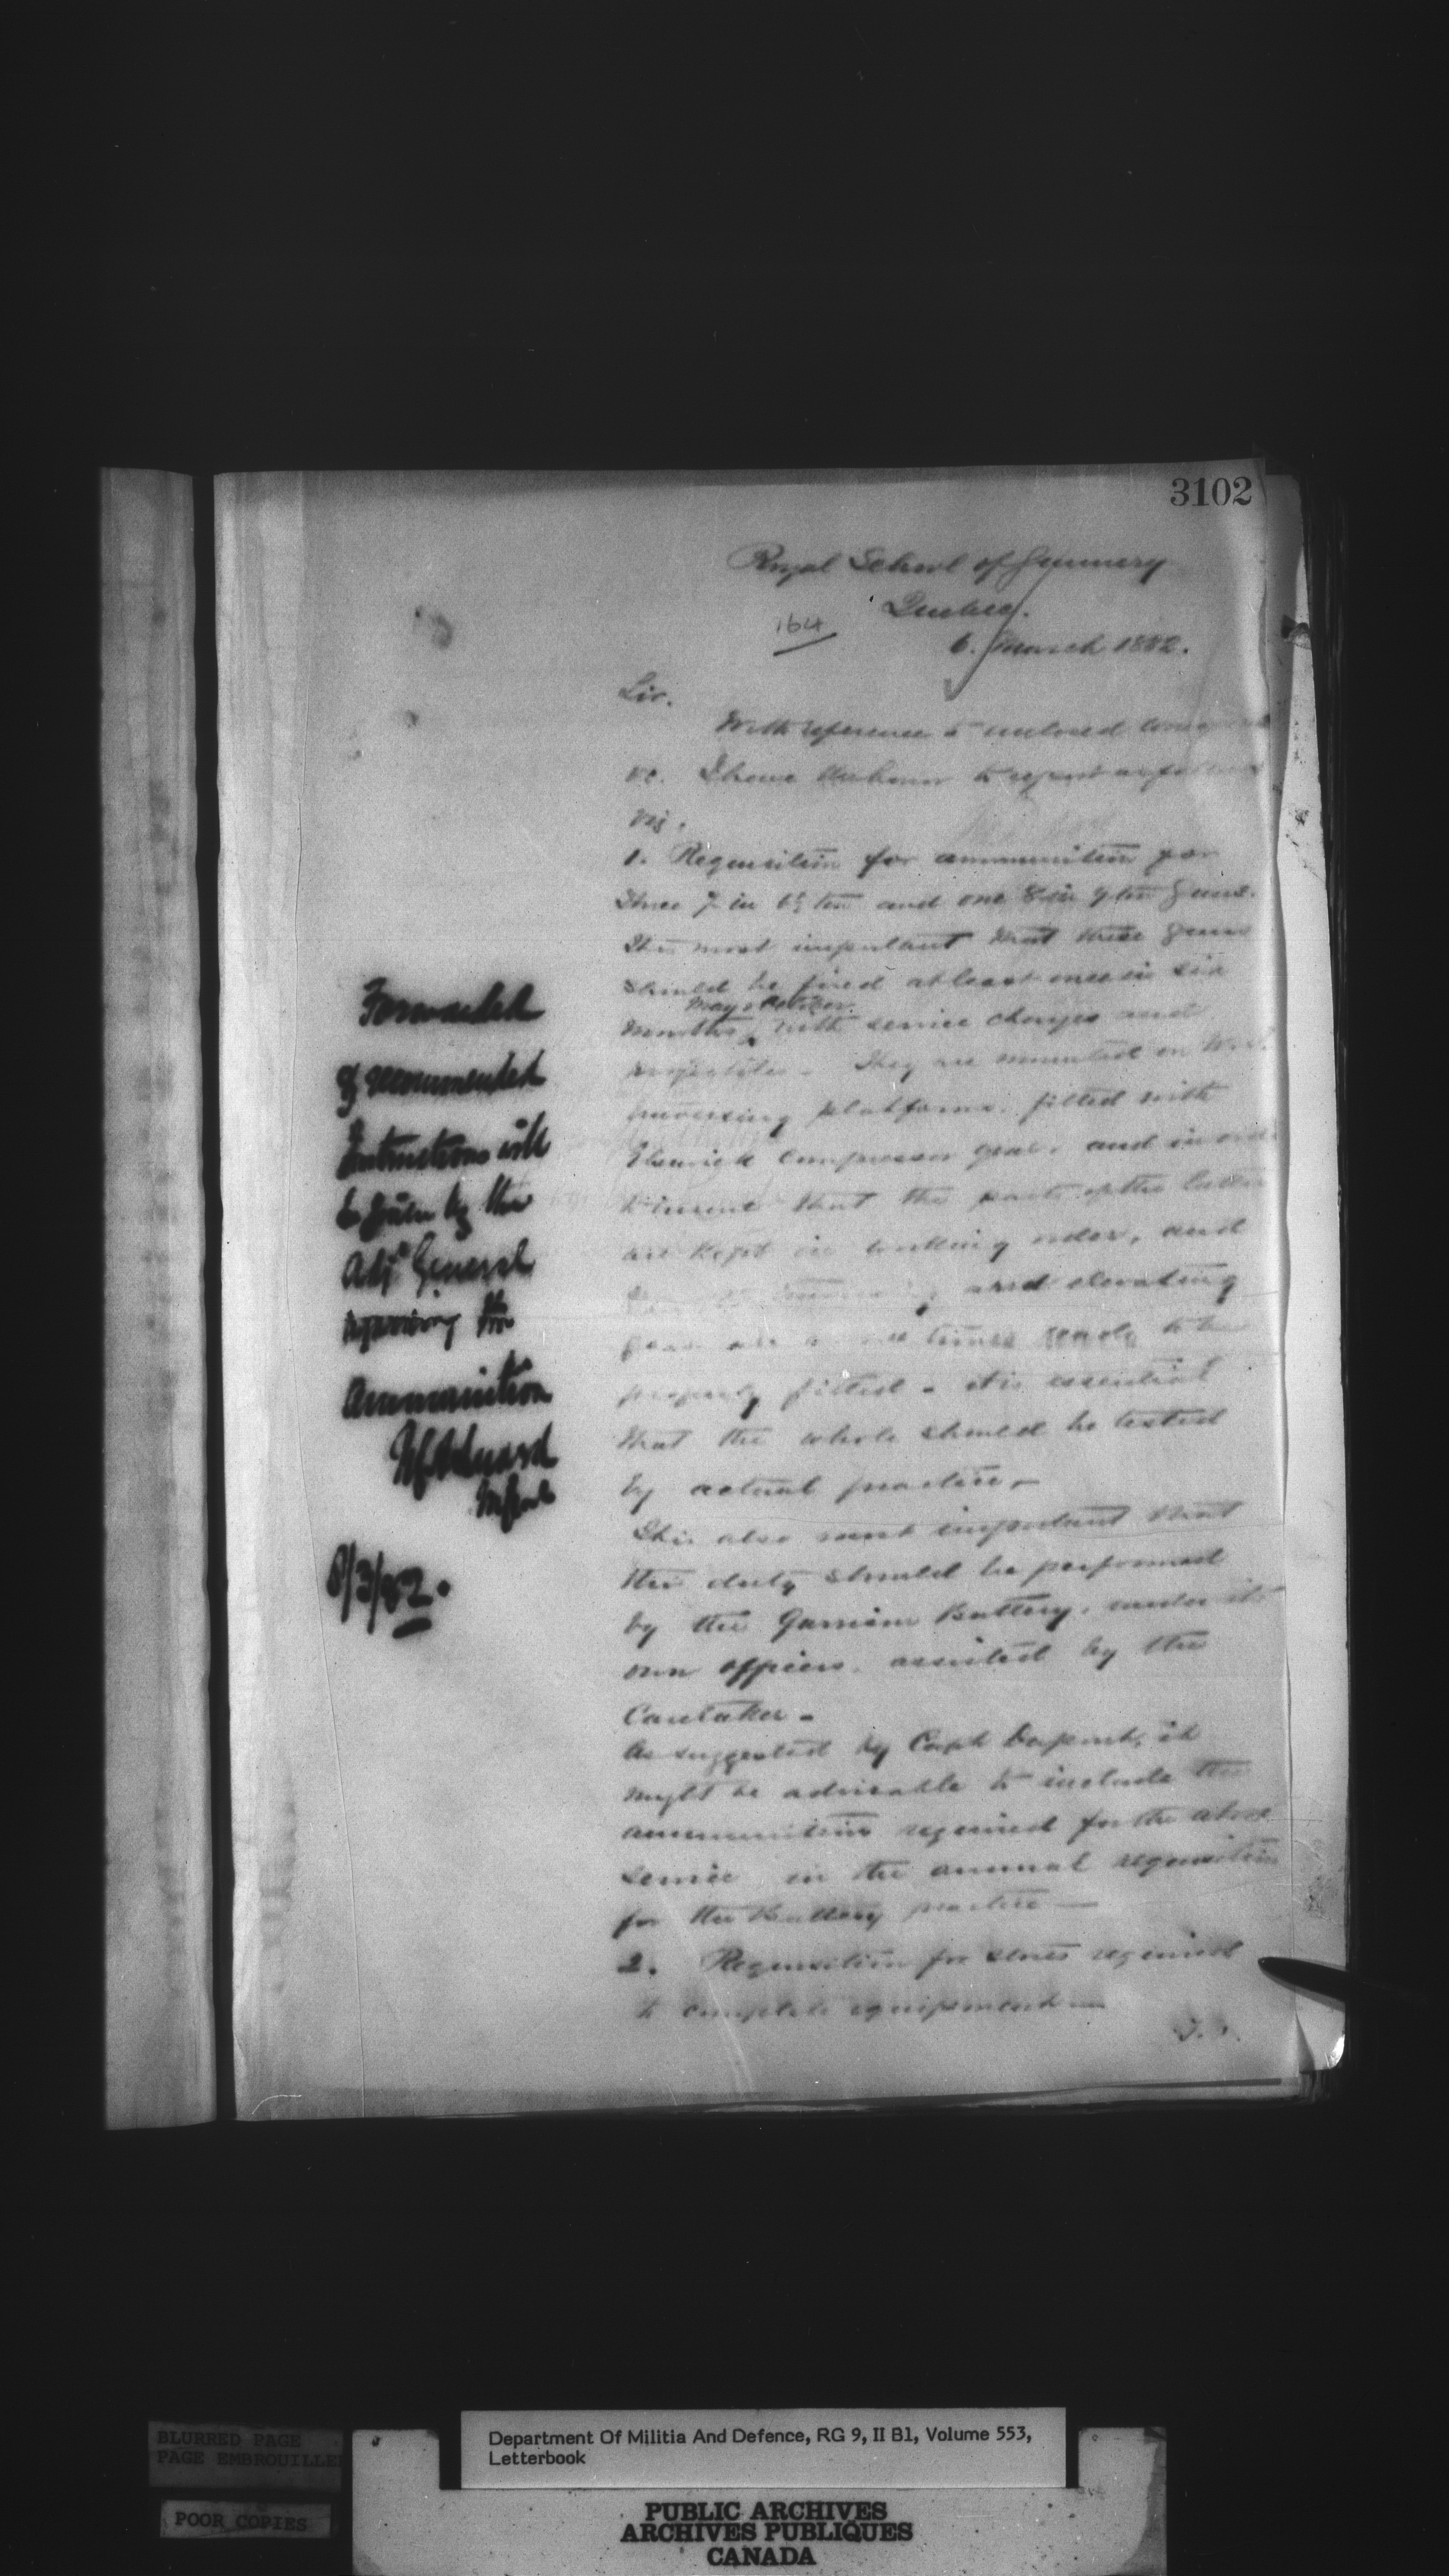 3102
Royal School of Gunnery
Quebec.
164
6. March 1882.
Sir.
With reference to enclosed
&c. I have the honor to report as follows
viz.
1. Requisition for ammunition for
Three 7 in 6½ ton and one 8 in 9 ton Guns.
It is most important that these guns
should be fired at least once in six
May & October.
months, with service charges and
projectiles. They are mounted on
traversing platforms, fitted with
Elswick compressor gear, and in order
to insure that the parts of the latter
are kept in working order, and
and elevating
gear are at all times ready to be
properly fitted - it is essential
that the whole should be tested
by actual practice.
It is also most important that
this duty should be performed
by the Garrison Battery, under its
own officers, assisted by the
Caretaker -
As suggested by Capt it
might be advisable to include the
ammunition required for the above
service in the annual requisition
for the Battery practice —
2. Requisition for stores required
to complete equipment —
Forwarded
& recommended
Instructions will
be given by the
Adjt General
regarding the
Ammunition
8/3/82.
BLURRED PAGE
PAGE EMBROUILLE
POOR COPIES
Department Of Militia And Defence, RG 9, II B1, Volume 553,
Letterbook
PUBLIC ARCHIVES
ARCHIVES PUBLIQUES
CANADA